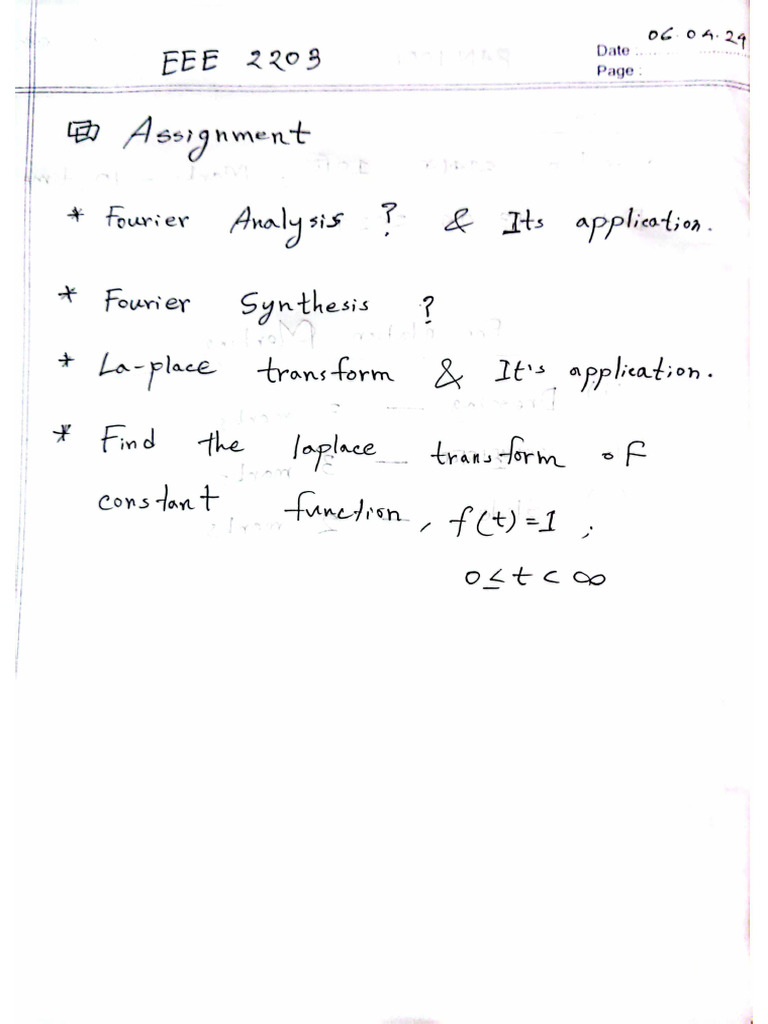 06.04.24
EEE 2203
Date :
Page :
Assignment
* Fourier Analysis ? & Its application.
* Fourier Synthesis ?
* La-place transform & It's application.
* Find the laplace transform of
constant function, f(t)=1 ;
0≤t<∞